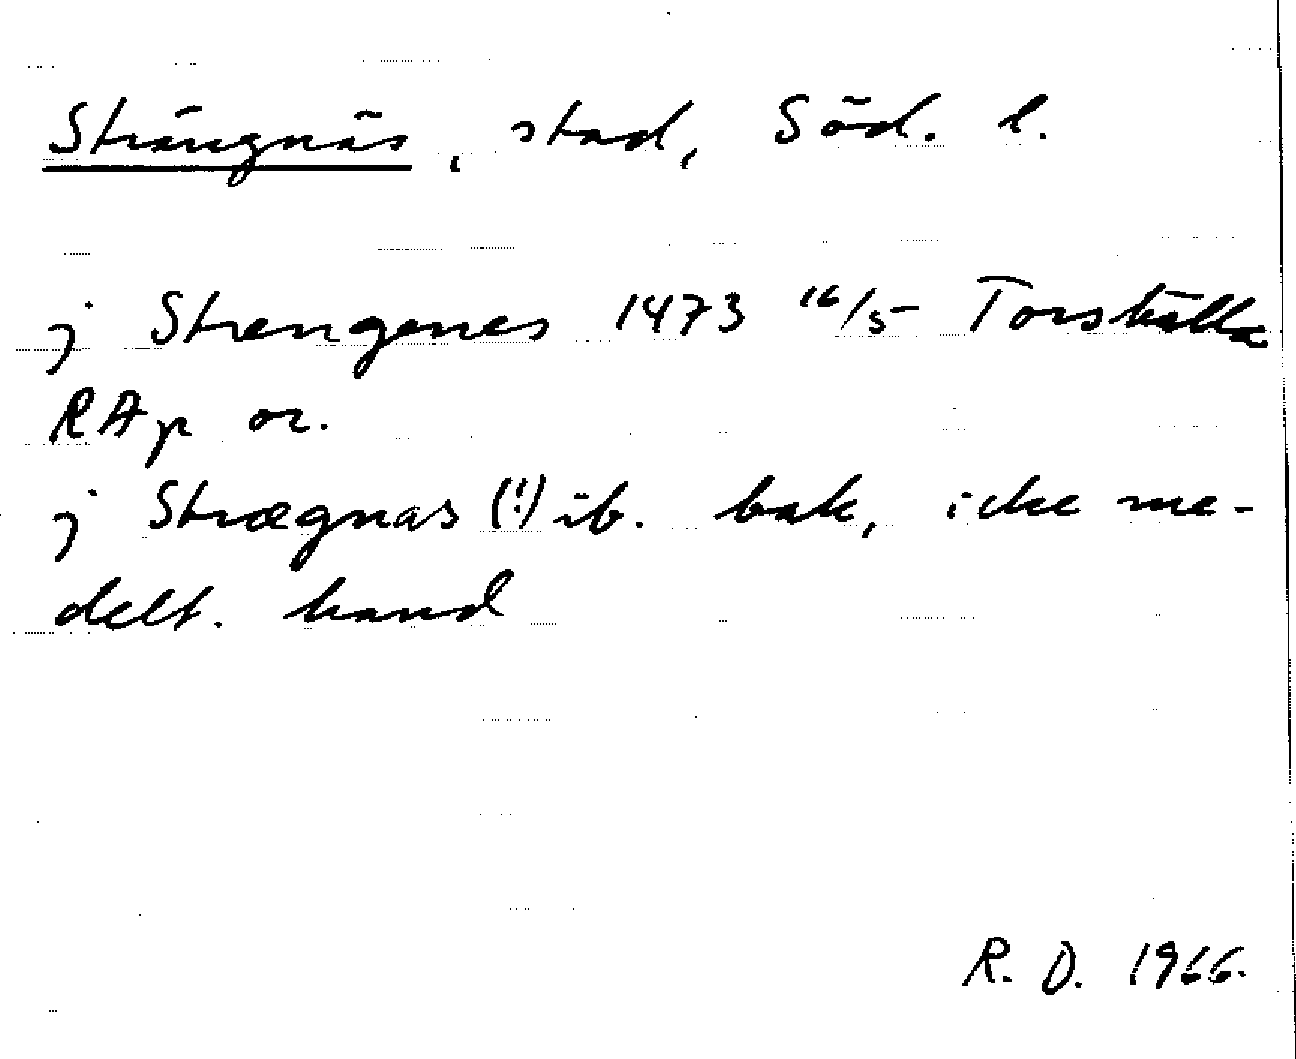 Strängnäs, stad, Söd. l.
j Strengenes 1473 16/5 Torshälla
RAp or.
j Strægnas (!) ib. bak, icke me-
delt. hand
R. D. 1966.